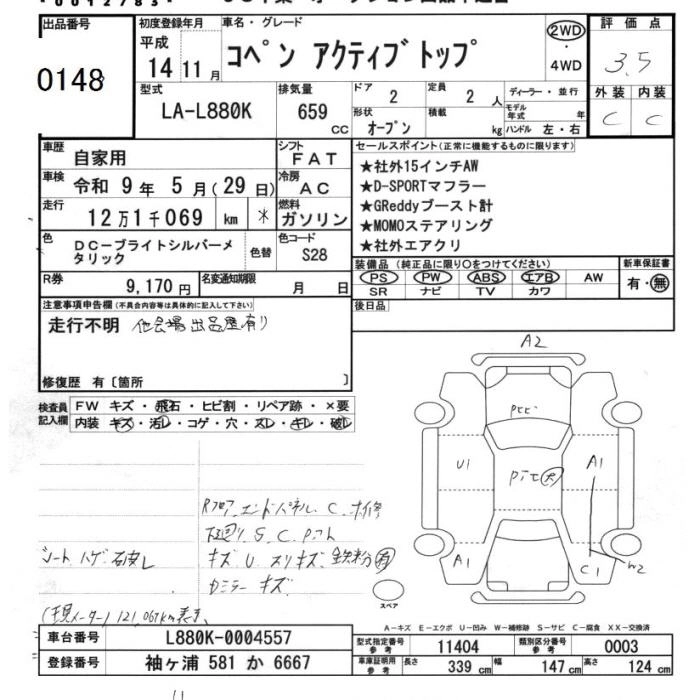 出品番号 0148
初度登録年月 平成 14 年 11 月
車名・グレード コペン アクティブトップ
2WD ・ 4WD
評価点 3.5
外装 内装
C C
型式 LA-L880K
排気量 659 CC
ドア 2
定員 2 人
形状 オープン
積載 kg
ディーラー・並行
モデル年式 年
ハンドル 左・右
車歴 自家用
シフト FAT
車検 令和 9 年 5 月(29 日)
冷房 AC
走行 12 万 1 千 069 km *
燃料 ガソリン
色 DC-ブライトシルバーメタリック
色替
色コード S28
R券 9,170 円
名変通知期限 月 日
セールスポイント(正常に機能するものに限ります)
★社外15インチAW
★D-SPORTマフラー
★GReddyブースト計
★MOMOステアリング
★社外エアクリ
装備品(純正品に限り○をつけてください)
PS PW ABS エアB AW
SR ナビ TV カワ
新車保証書
有・無
後日品
注意事項申告欄(不具合内容等は具体的に記入して下さい)
走行不明 他会場出品歴有り
修復歴 有〔箇所 〕
検査員記入欄
FW キズ・飛石・ヒビ割・リペア跡・×要
内装 キズ・汚レ・コゲ・穴・スレ・キレ・破レ
Rフロア、エンドパネル C、ホ修
下廻り S、C、Pアト
シート ハゲ 破レ
キズ U スリキズ 鉄粉 有
ミラー キズ
(現メーター) 121,069km表示
A2
U1
A1
A1
C1
W2
スペア
A-キズ E-エクボ U-凹み W-補修跡 S-サビ C-腐食 XX-交換済
車台番号 L880K-0004557
登録番号 袖ヶ浦 581 か 6667
型式指定番号 参考 11404
類別区分番号 参考 0003
車庫証明用 参考 長さ 339 cm 幅 147 cm 高さ 124 cm